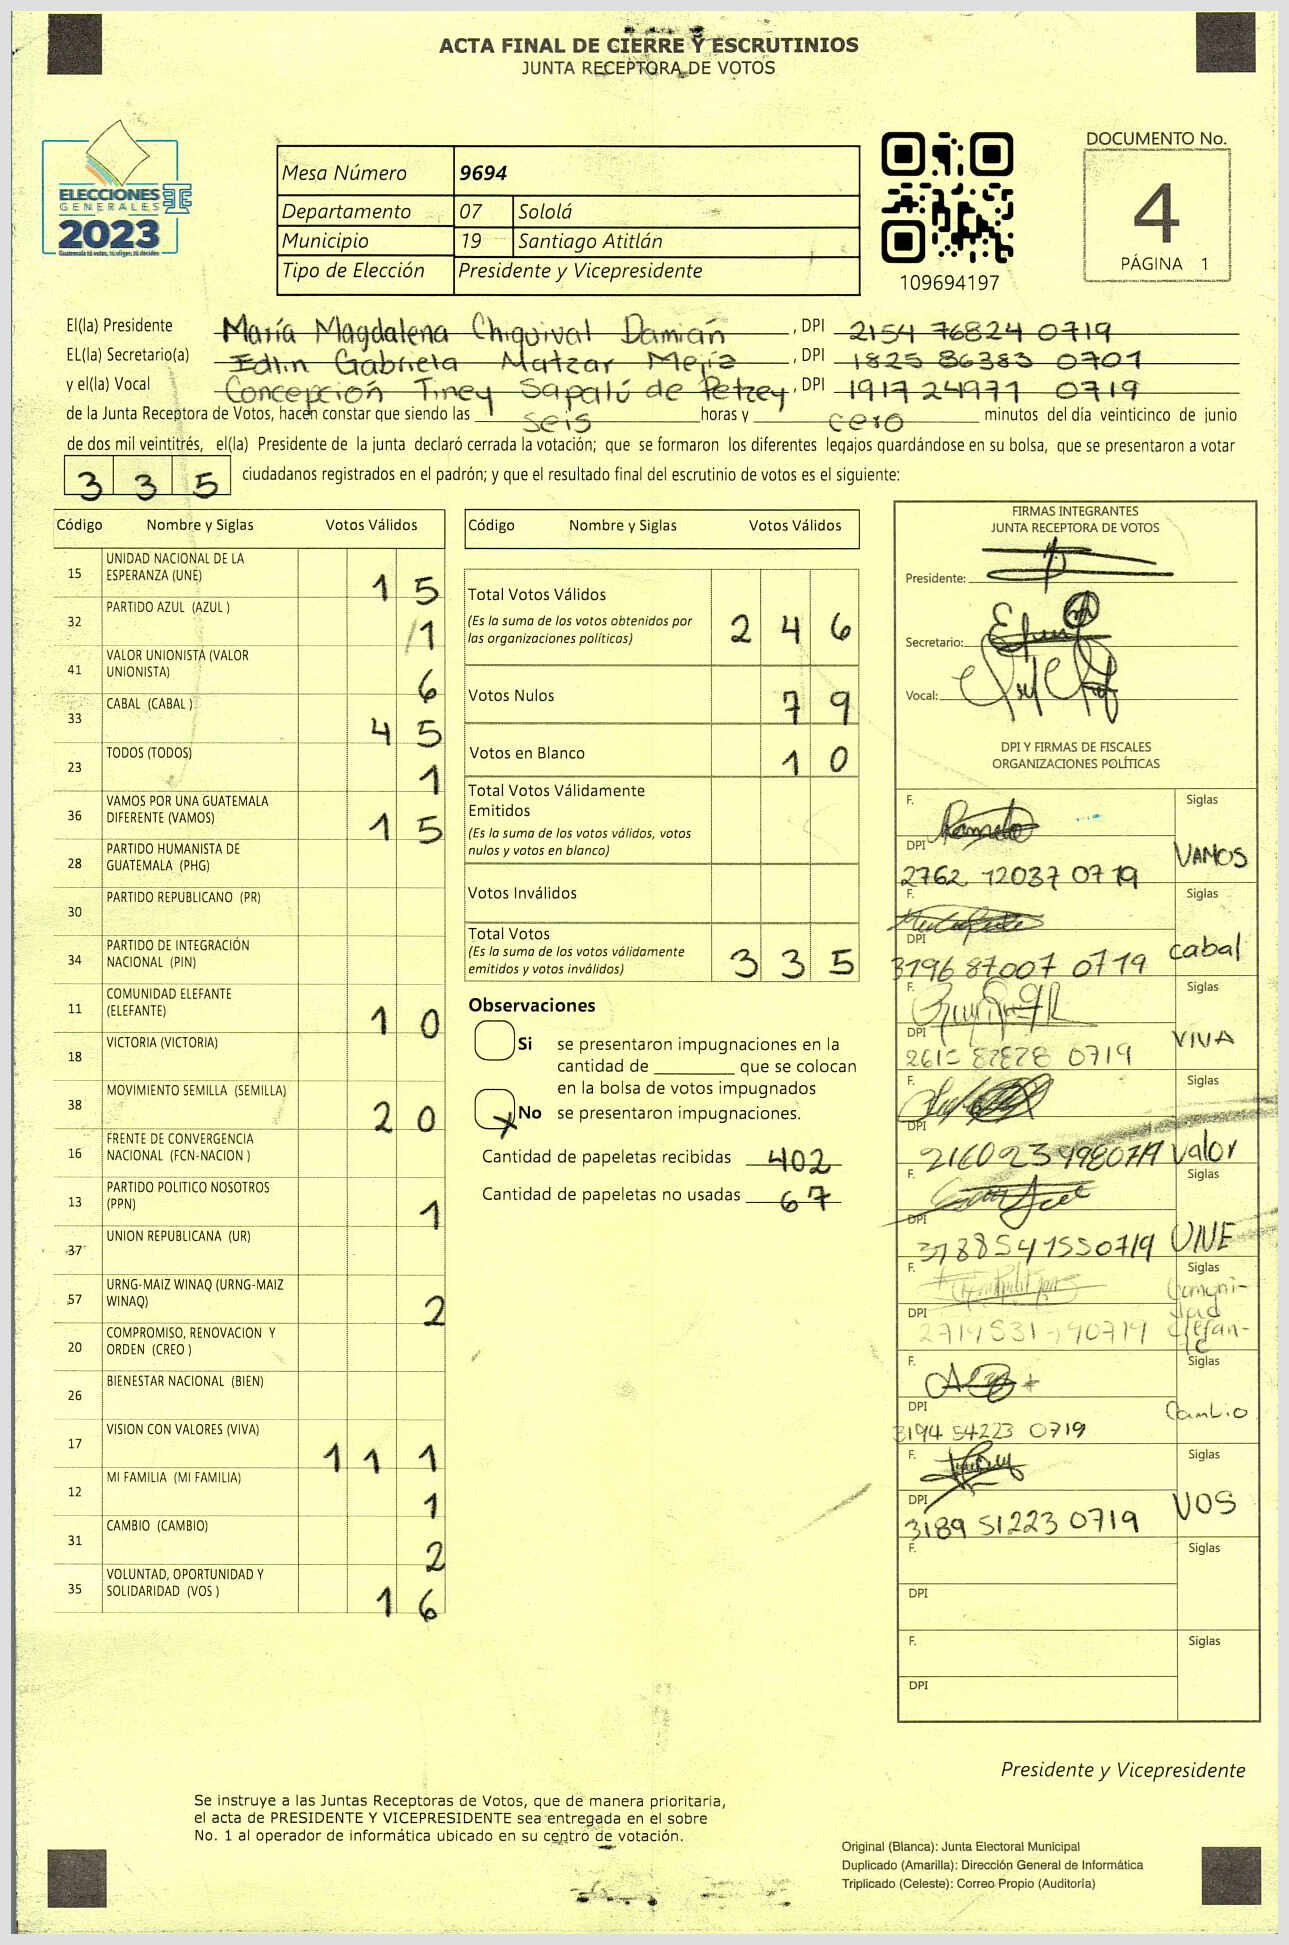 ACTA FINAL DE CIERRE Y ESCRUTINIOS
JUNTA RECEPTORA DE VOTOS
ELECCIONES
GENERALES
2023
Guatemala tú votas, tú eliges, tú decides
Mesa Número 9694
Departamento 07 Sololá
Municipio 19 Santiago Atitlán
Tipo de Elección Presidente y Vicepresidente
109694197
DOCUMENTO No.
4
PÁGINA 1
El(la) Presidente María Magdalena Chiquival Damián, DPI 2154 76824 0719
EL(la) Secretario(a) Edlin Gabriela Matzar Mejía, DPI 1825 86383 0701
y el(la) Vocal Concepción Tiney Sapalú de Petzey, DPI 1917 24971 0719
de la Junta Receptora de Votos, hacen constar que siendo las seis horas y cero minutos del día veinticinco de junio
de dos mil veintitrés, el(la) Presidente de la junta declaró cerrada la votación; que se formaron los diferentes legajos guardándose en su bolsa, que se presentaron a votar
3 3 5 ciudadanos registrados en el padrón; y que el resultado final del escrutinio de votos es el siguiente:
Código Nombre y Siglas Votos Válidos
15 UNIDAD NACIONAL DE LA ESPERANZA (UNE) 1 5
32 PARTIDO AZUL (AZUL ) 1
41 VALOR UNIONISTA (VALOR UNIONISTA) 6
33 CABAL (CABAL ) 4 5
23 TODOS (TODOS) 1
36 VAMOS POR UNA GUATEMALA DIFERENTE (VAMOS) 1 5
28 PARTIDO HUMANISTA DE GUATEMALA (PHG)
30 PARTIDO REPUBLICANO (PR)
34 PARTIDO DE INTEGRACIÓN NACIONAL (PIN)
11 COMUNIDAD ELEFANTE (ELEFANTE) 1 0
18 VICTORIA (VICTORIA)
38 MOVIMIENTO SEMILLA (SEMILLA) 2 0
16 FRENTE DE CONVERGENCIA NACIONAL (FCN-NACION )
13 PARTIDO POLITICO NOSOTROS (PPN) 1
37 UNION REPUBLICANA (UR)
57 URNG-MAIZ WINAQ (URNG-MAIZ WINAQ) 2
20 COMPROMISO, RENOVACION Y ORDEN (CREO )
26 BIENESTAR NACIONAL (BIEN)
17 VISION CON VALORES (VIVA) 1 1 1
12 MI FAMILIA (MI FAMILIA) 1
31 CAMBIO (CAMBIO) 2
35 VOLUNTAD, OPORTUNIDAD Y SOLIDARIDAD (VOS ) 1 6
Código Nombre y Siglas Votos Válidos
Total Votos Válidos 2 4 6
(Es la suma de los votos obtenidos por
las organizaciones políticas)
Votos Nulos 7 9
Votos en Blanco 1 0
Total Votos Válidamente
Emitidos
(Es la suma de los votos válidos, votos
nulos y votos en blanco)
Votos Inválidos
Total Votos 3 3 5
(Es la suma de los votos válidamente
emitidos y votos inválidos)
Observaciones
Si se presentaron impugnaciones en la
cantidad de ________ que se colocan
en la bolsa de votos impugnados
X No se presentaron impugnaciones.
Cantidad de papeletas recibidas 402
Cantidad de papeletas no usadas 67
FIRMAS INTEGRANTES
JUNTA RECEPTORA DE VOTOS
Presidente:
Secretario:
Vocal:
DPI Y FIRMAS DE FISCALES
ORGANIZACIONES POLÍTICAS
F. Siglas
DPI 2762 12037 0719 VAMOS
F. Siglas
DPI 3196 87007 0719 cabal
F. Siglas
DPI 0719 VIVA
F. Siglas
DPI valor
F. Siglas
DPI 3788541550719 UNE
F. Siglas
DPI Comuni-
dad
elefan-
te
F. Siglas
DPI 3194 54223 0719 Cambio
F. Siglas
DPI 3189 51223 0719 VOS
F. Siglas
DPI
F. Siglas
DPI
Presidente y Vicepresidente
Se instruye a las Juntas Receptoras de Votos, que de manera prioritaria,
el acta de PRESIDENTE Y VICEPRESIDENTE sea entregada en el sobre
No. 1 al operador de informática ubicado en su centro de votación.
Original (Blanca): Junta Electoral Municipal
Duplicado (Amarilla): Dirección General de Informática
Triplicado (Celeste): Correo Propio (Auditoría)